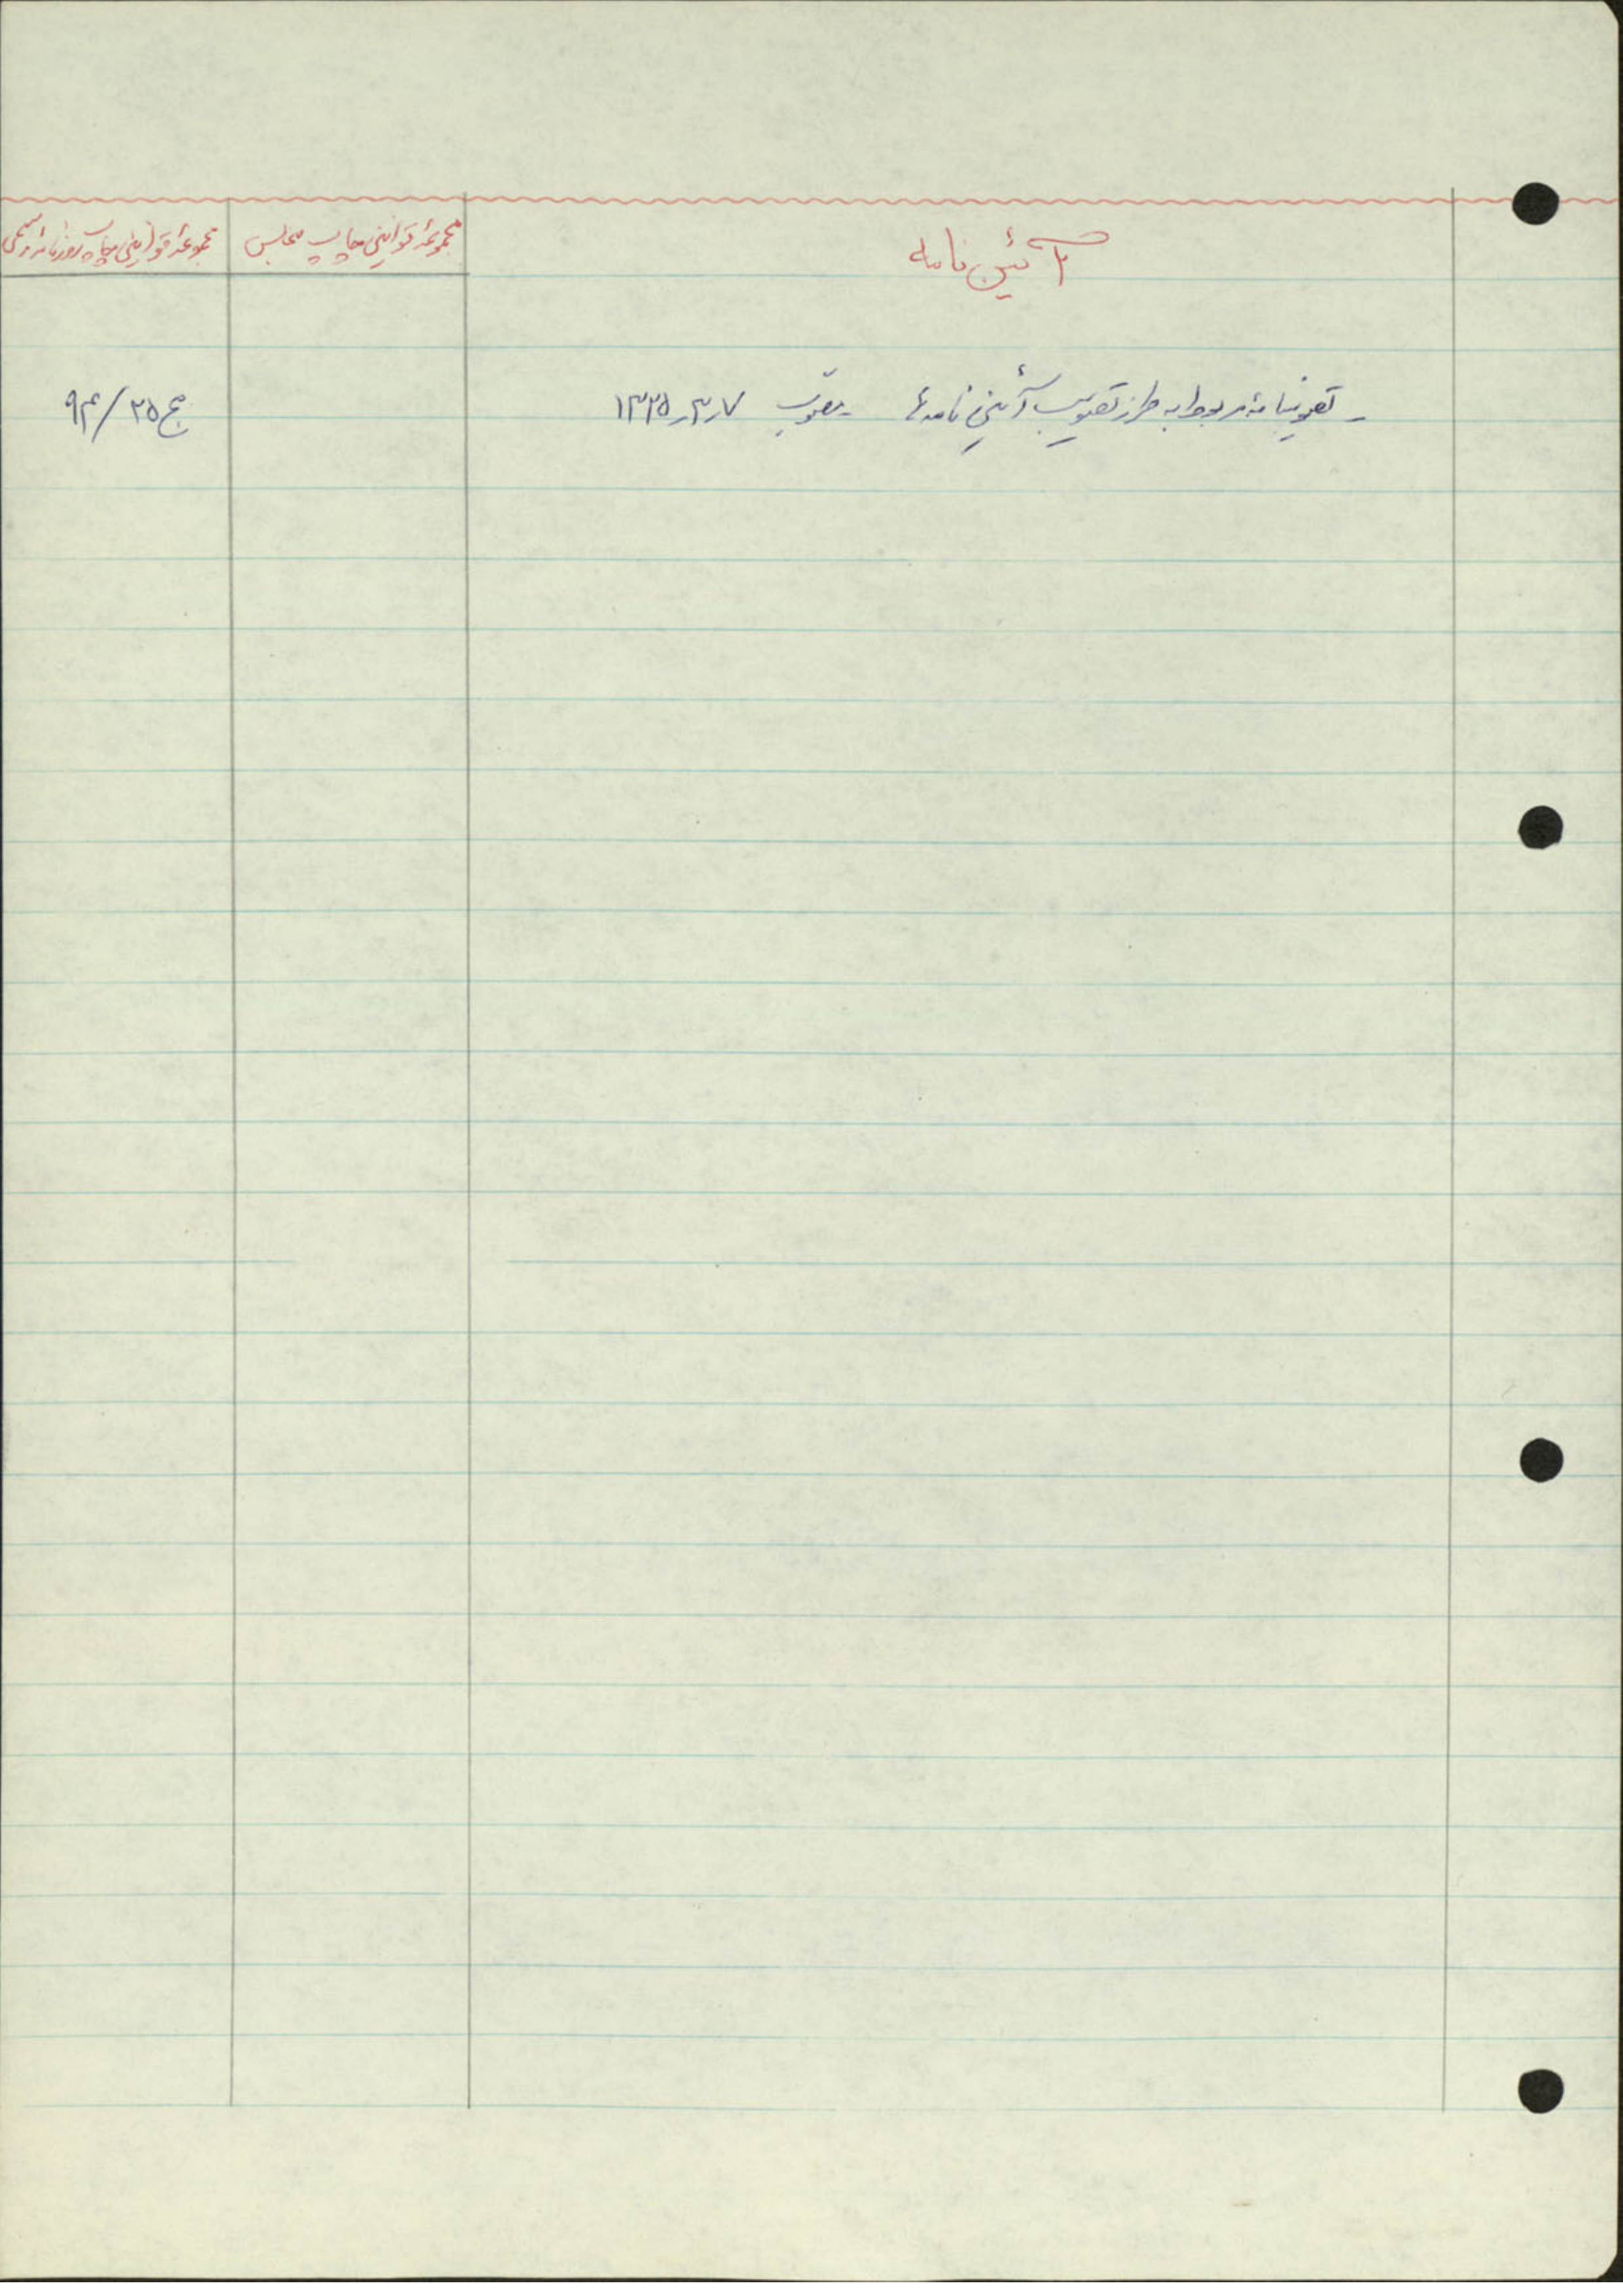 آئین نامه
مجموعهٔ قوانین چاپ مجلس
مجموعهٔ قوانین چاپ روزنامه رسمی
- تصویبنامهٔ مربوط به طرز تصویب آئین نامه‌ها - مصوّب ۱۳۳۵٫۳٫۷
مج ۳۵/۹۴